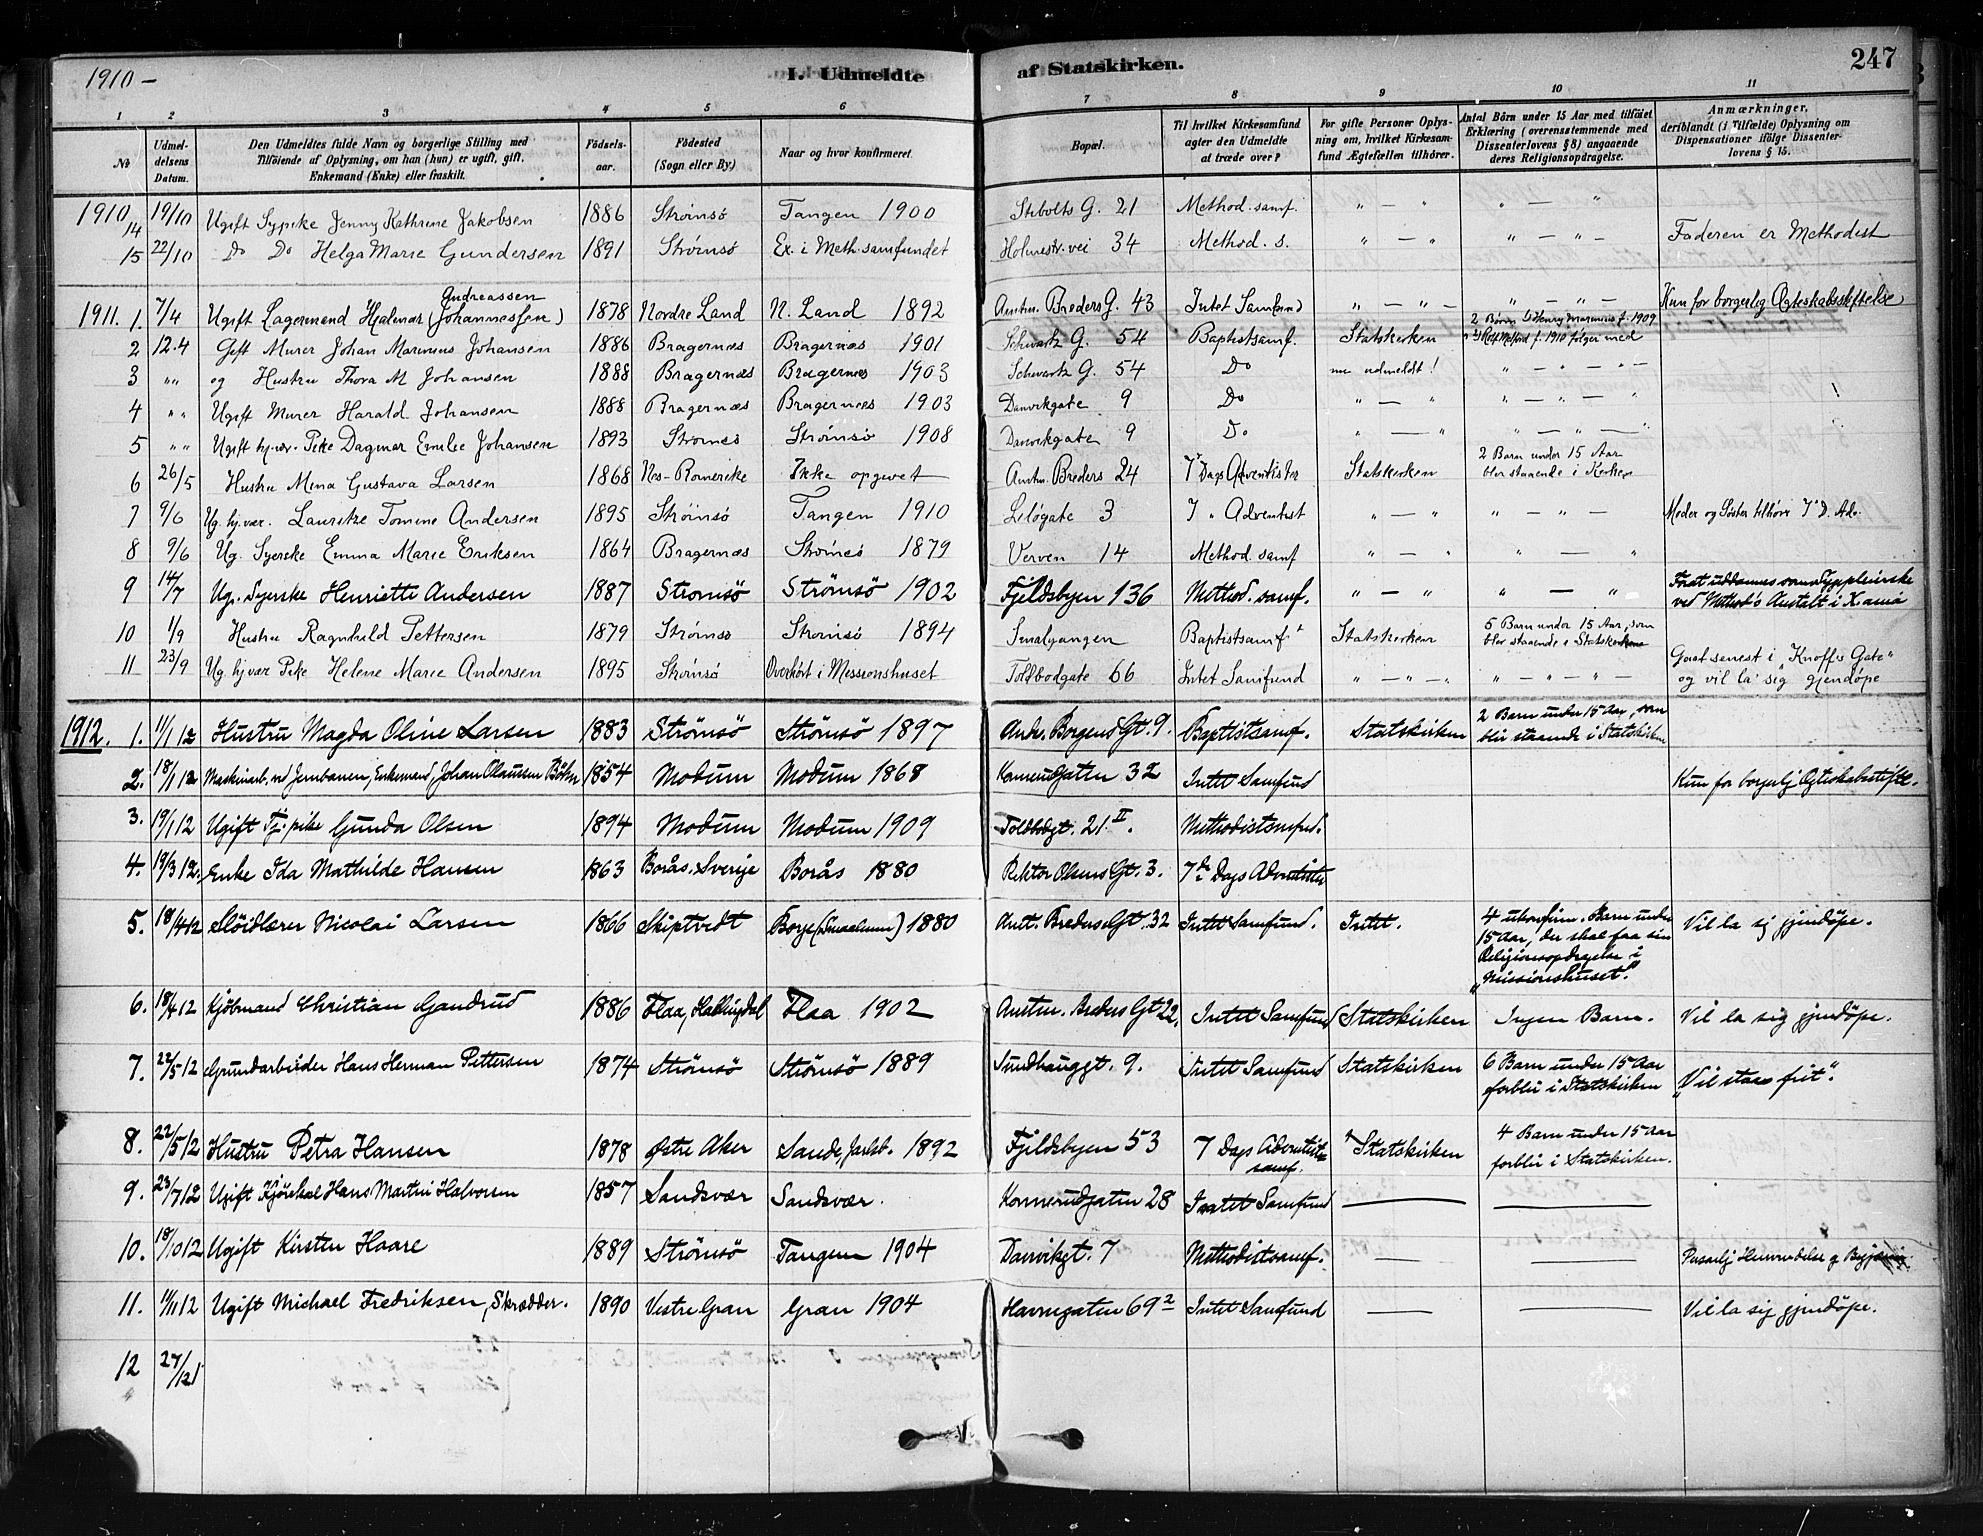 1910 –
I. Udmeldte af Statskirken.
247
1 2 3 4 5 6 7 8 9 10 11
No
Udmel-
delsens
Datum.
Den Udmeldtes fulde Navn og borgerlige Stilling med
Tilføiende af Oplysning, om han (hun) er ugift, gift,
Enkemand (Enke) eller fraskilt.
Fødsels-
aar.
Fødested
(Sogn eller By.)
Naar og hvor konfirmeret.
Bopæl.
Til hvilket Kirkesamfund
agter den Udmeldte
at træde over?
For gifte Personer Oplys-
ning om, hvilket Kirkesam-
fund Ægtefællen tilhører.
Antal Børn under 15 Aar med tilføiet
Erklæring (overensstemmende med
Dissenterlovens § 8) angaaende
deres Religionsopdragelse.
Anmærkninger,
deriblandt (i Tilfælde) Oplysning om
Dispensationer ifølge Dissenter-
lovens § 15.
1910 14 19/10 Ugift Sypike Jenny Kathrine Jakobsen 1886 Strømsø Tangen 1900 Stibolts G. 21 Method. samf. " — " " — "
15 22/10 Do Do Helga Marie Gundersen 1891 Strømsø Ex. i Meth. samfundet Holmestr. vei 34 Method. s. " — " " — " — Faderen er Methodist
1911. 1. 7/4 Ugift Lagermand Hjalmar Andreassen (Johannessen) 1878 Nordre Land N. Land 1892 Amtm. Breders G. 43 Intet Samfund " — " — " — " — Kun for borgerlig Ægteskabsstiftelse
2 12.4 Gift Murer Johan Marinius Johansen 1886 Bragernæs Bragernæs 1901 Schwartz G. 54 Baptistsamf. Statskirken 2 Børn 1) Henry Marinius f. 1909
f. 1910 følger med
3 " " og Hustru Thora M Johansen 1888 Bragernæs Bragernæs 1903 Schwartz G. 54 Do nu udmeldt! " — " — " —
4 " " Ugift Murer Harald Johansen 1888 Bragernæs Bragernæs 1903 Danvikgate 9 Do " — " " — " — "
5 " " Ugift hj.vær. Pike Dagmar Emilie Johansen 1893 Strømsø Strømsø 1908 Danvikgate 9 Do " — " " — " — "
6 26/5 Hustru Mina Gustava Larsen 1868 Nes-Romerike Ikke opgivet Amtm. Breders 24 7' Dags Adventister Statskirken 2 Barn under 15 Aar
blir staaende i Kirken
7 9/6 Ug. hj.vær. Lauritze Tomine Andersen 1895 Strømsø Tangen 1910 Leløgate 3 7 " Adventist " — " " — " — Moder og Søster tilhører 7' D. Adv.
8 9/6 Ug. Syerske Emma Marie Eriksen 1864 Bragernæs Strømsø 1879 Verven 14 Method. samf " — " " — "
9 14/7 Ug. Syerske Henriette Andersen 1887 Strømsö Strömsö 1902 Fjeldsbyen 136 Method. samf. " — " " — " Forat uddannes som Sygepleierske
ved Method's Anstalt i X.ania
10 1/9 Hustru Ragnhild Pettersen 1879 Strømsø Strømsø 1894 Smalgangen Baptistsamf Statskirken 5 Barn under 15 Aar, som
blir staaende i Statskirken
11 23/9 Ug. hj.vær Pike Helene Marie Andersen 1895 Strømsø Overhørt i Missionshuset Toldbodgate 66 Intet Samfund " — " — " " — " — " — Gaat senest i "Knoffs Gate"
og vil la sig gjendøpe
1912. 1. 11/1 12 Hustru Magda Oline Larsen 1883 Strömsö Strömsö 1897 Andr. Borgens Gt. 9. Baptistsamf. Statskirken 2 Barn under 15 Aar, som
blir staaende i Statskirken
2. 18/1 12 Maskinarb. vd Jernbanen, Enkemand, Johan Olaussen 1854 Modum Modum 1868 Konnerudgaten 32 Intet Samfund Kun for borgerlig Ægteskabsstift.
3. 19/1 12 Ugift Tj. pike Gunda Olsen 1894 Modum Modum 1909 Toldbodgt. 21 II. Methodistsmfnd.
4. 19/3 12. Enke Ida Mathilde Hansen 1863 Borås, Sverige Borås 1880 Rektor Olsens Gt. 3. 7de Dags Adventister
5. 18/4 12 Slöidlærer Nicolai Larsen 1866 Skiptvedt Borge (Smaalenene) 1880 Amt. Breders Gt. 32 Intet Samfund. Intet. 4 ukonfirm. Barn under
15 Aar, der skal faa sin
Religionsopdragelse i
"Missionshuset." Vil la sig gjendöpe.
6. 18/4 12 Kjöbmand Christian Gandrud 1886 Flaa, Hallingdal Flaa 1902 Amtm. Breders Gt 22. Intet Samfund Statskirken Ingen Barn. Vil la sig gjendöpe.
7. 22/5 12 Grundarbeider Hans Herman Pettersen 1874 Strömsö Strömsö 1889 Sundhauggt. 9. Intet Samfund Statskirken 6 Barn under 15 Aar
forblir i Statskirken "Vil staa frit".
8. 22/5 12 Hustru Petra Hansen 1878 Østre Aker Sande, Jarlsb. 1892 Fjeldsbyen 53 7 Dags Adventist-
samf. Statskirken 4 Barn under 15 Aar
forblir i Statskirken.
9. 23/7 12 Ugift Kjørekal Hans Martin Halvorsen 1857 Sandsvær Sandsvær. Konnerudgaten 28 Intet Samfund — —
10. 18/10 12 Ugift Kirsten Haare 1889 Strömsö Tangen 1904 Danvikgt. 7 Methodistsamf. — — Personlig Henvendelse og
11. 11/11 12 Ugift Michael Fredriksen, Skrædder. 1890 Vestre Gran Gran 1904 Havnegaten 69 2 Intet Samfund — — Vil la sig gjendöpe.
12 27/12